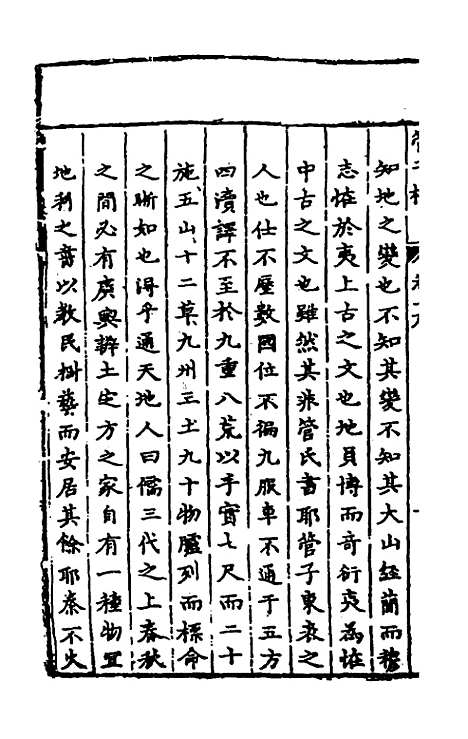 知地之變也不知其變不知其大山經簡而穆
志恠於夷上古之文也地員博而奇衍夷為恠
中古之文也雖然其非管氏書耶管子東表之
人也仕不歷數國位不徧九服車不通于五方
四瀆譯不至於九重八荒以手實七尺而二十
施五山十二草九州三土九十物臚列而標命
之晰如也得乎通天地人曰儒三代之上春秋
之間必有廣輿辨土定方之家自有一種物宜
地利之書以教民樹藝而安居其餘耶秦不火